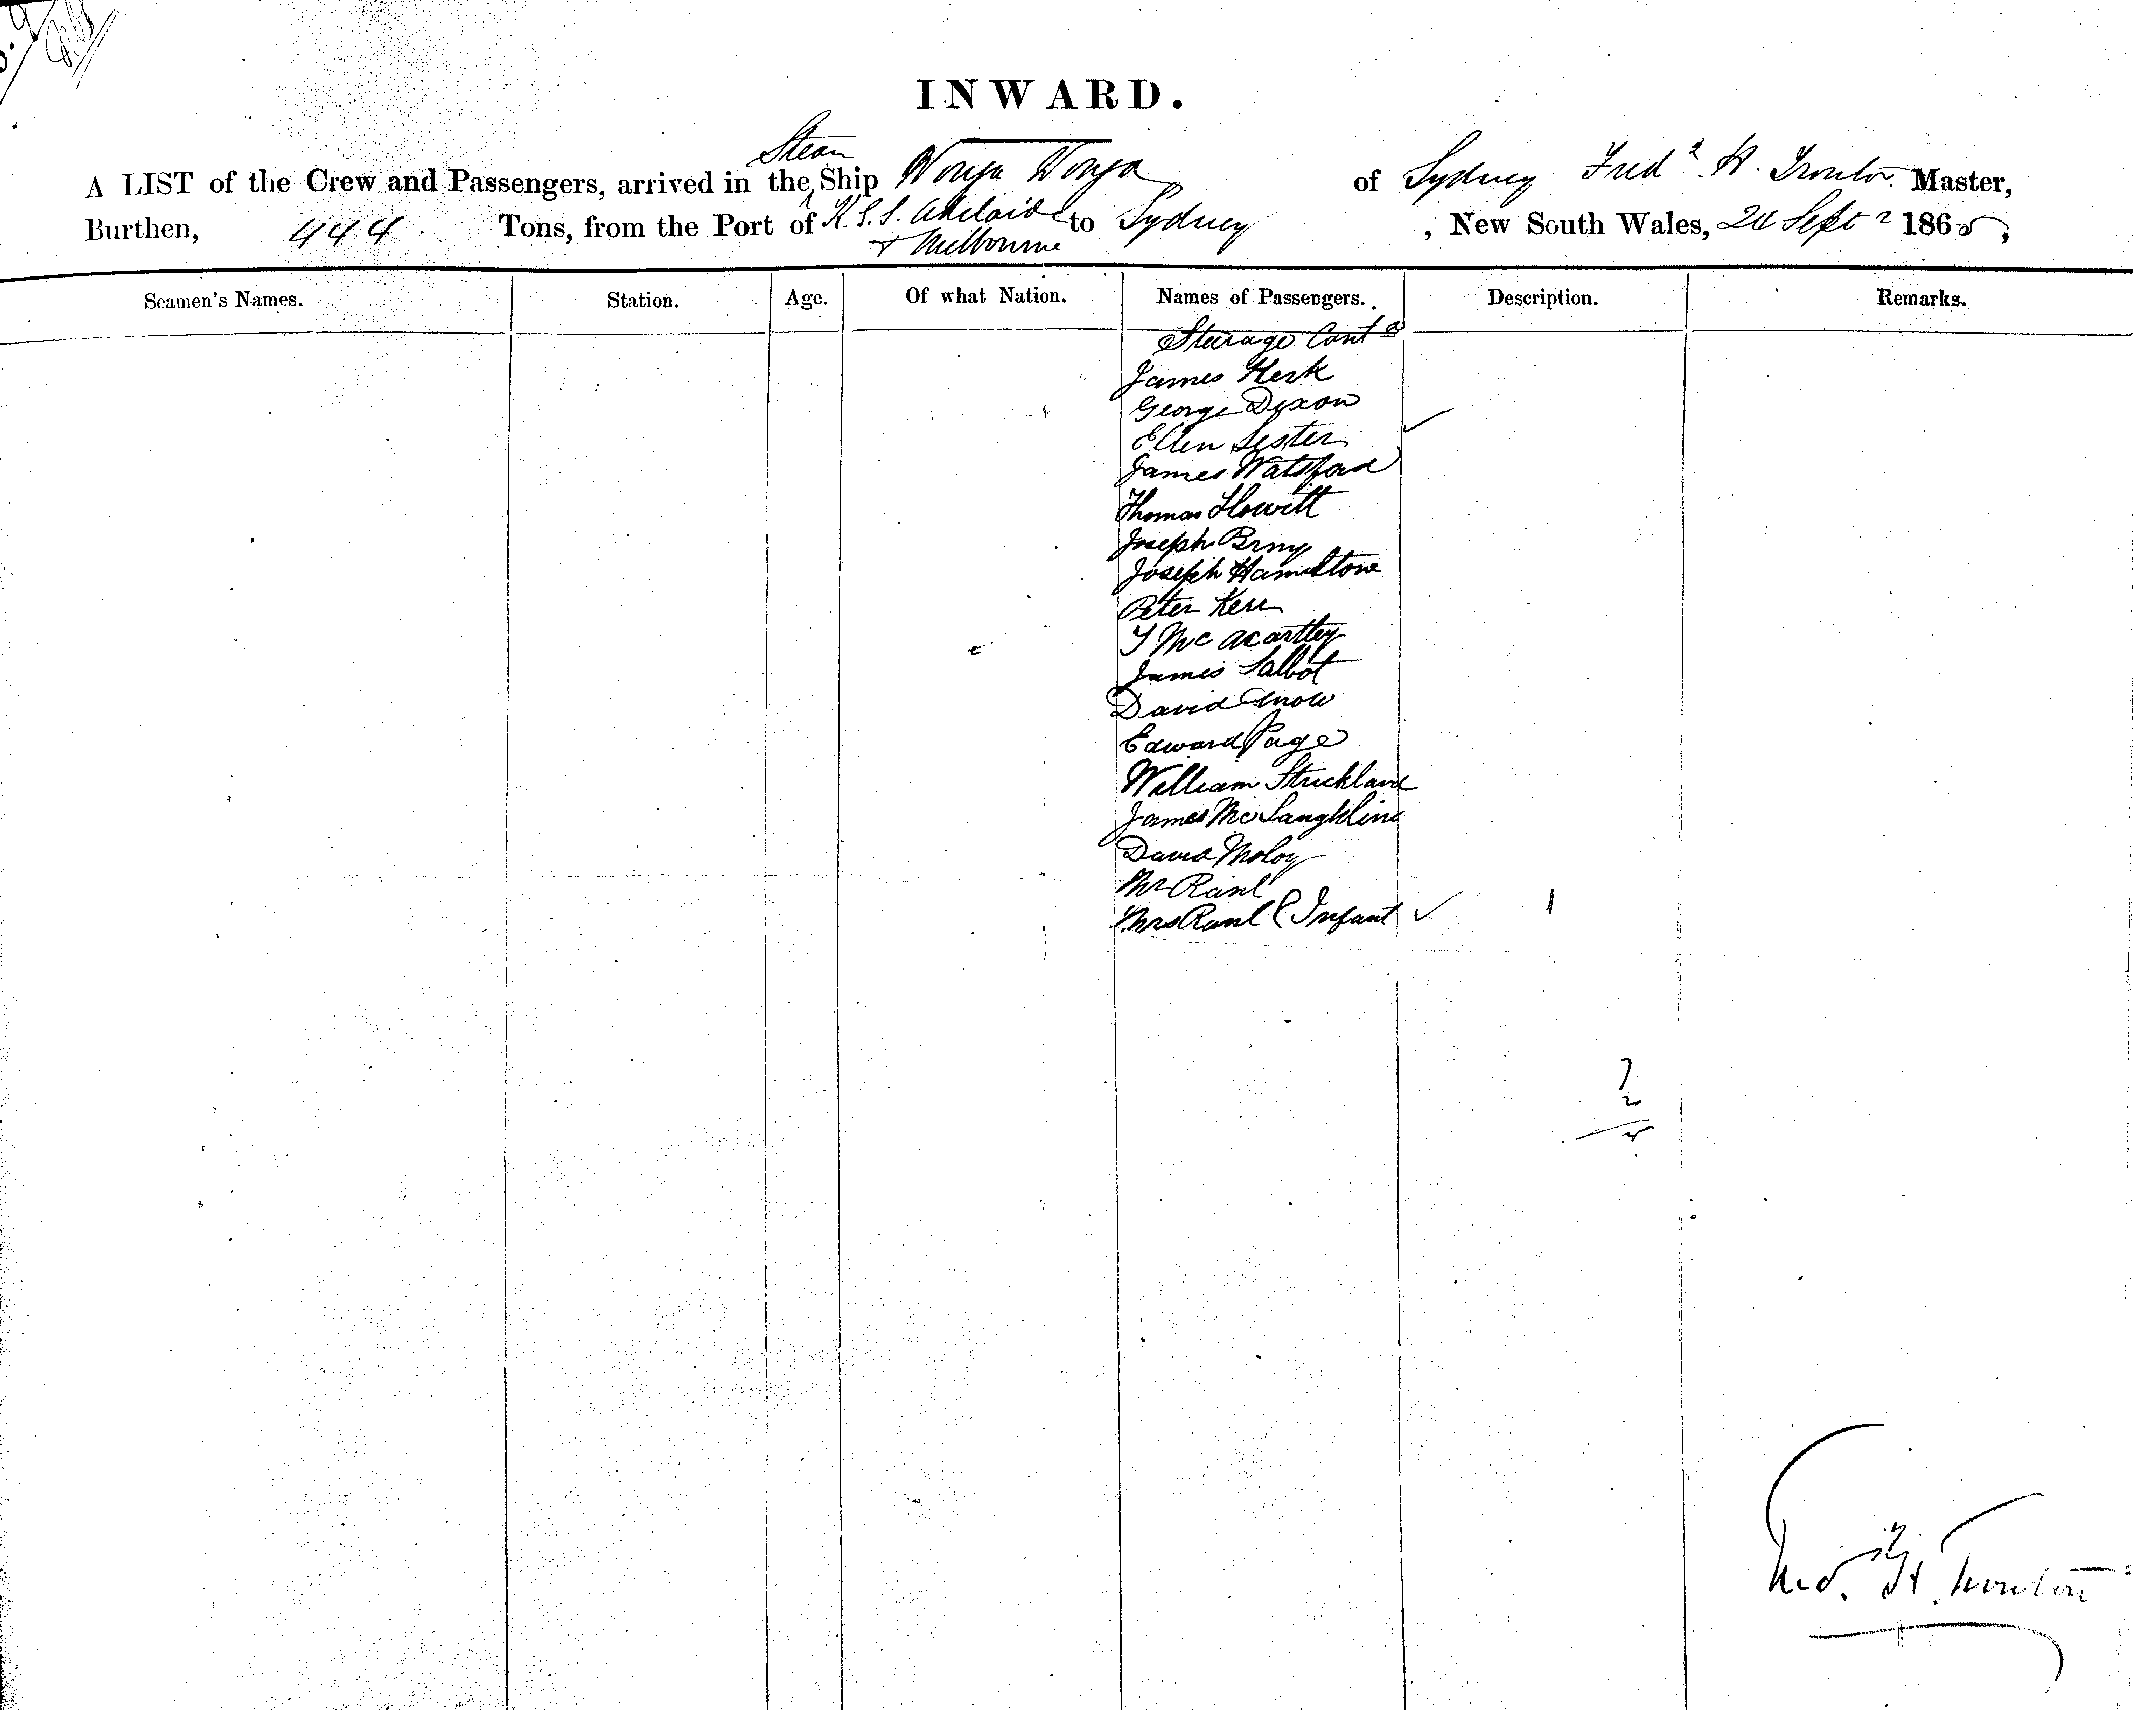 INWARD.
Steam
A LIST of the Crew and Passengers, arrived in the Ship Wonga Wonga of Sydney Fredk H. Trouton Master,
Burthen, 444 Tons, from the Port of K.G.S. Adelaide to Sydney, New South Wales, 24 Sept 1865,
& Melbourne
Seamen's Names. Station. Age. Of what Nation. Names of Passengers. Description. Remarks.
Steerage Contd
James Herk
George Dixon
Ellen Lester
James Watsford
Thomas Howitt
Joseph
Joseph Hamiltone
Peter Kerr
T Mc acartley
James Talbot
David Snow
Edward Page
William Strickland
James McLaughline
David Moloy
Mr Raul
Mrs Raul & Infant 1
Fred. H. Trouton